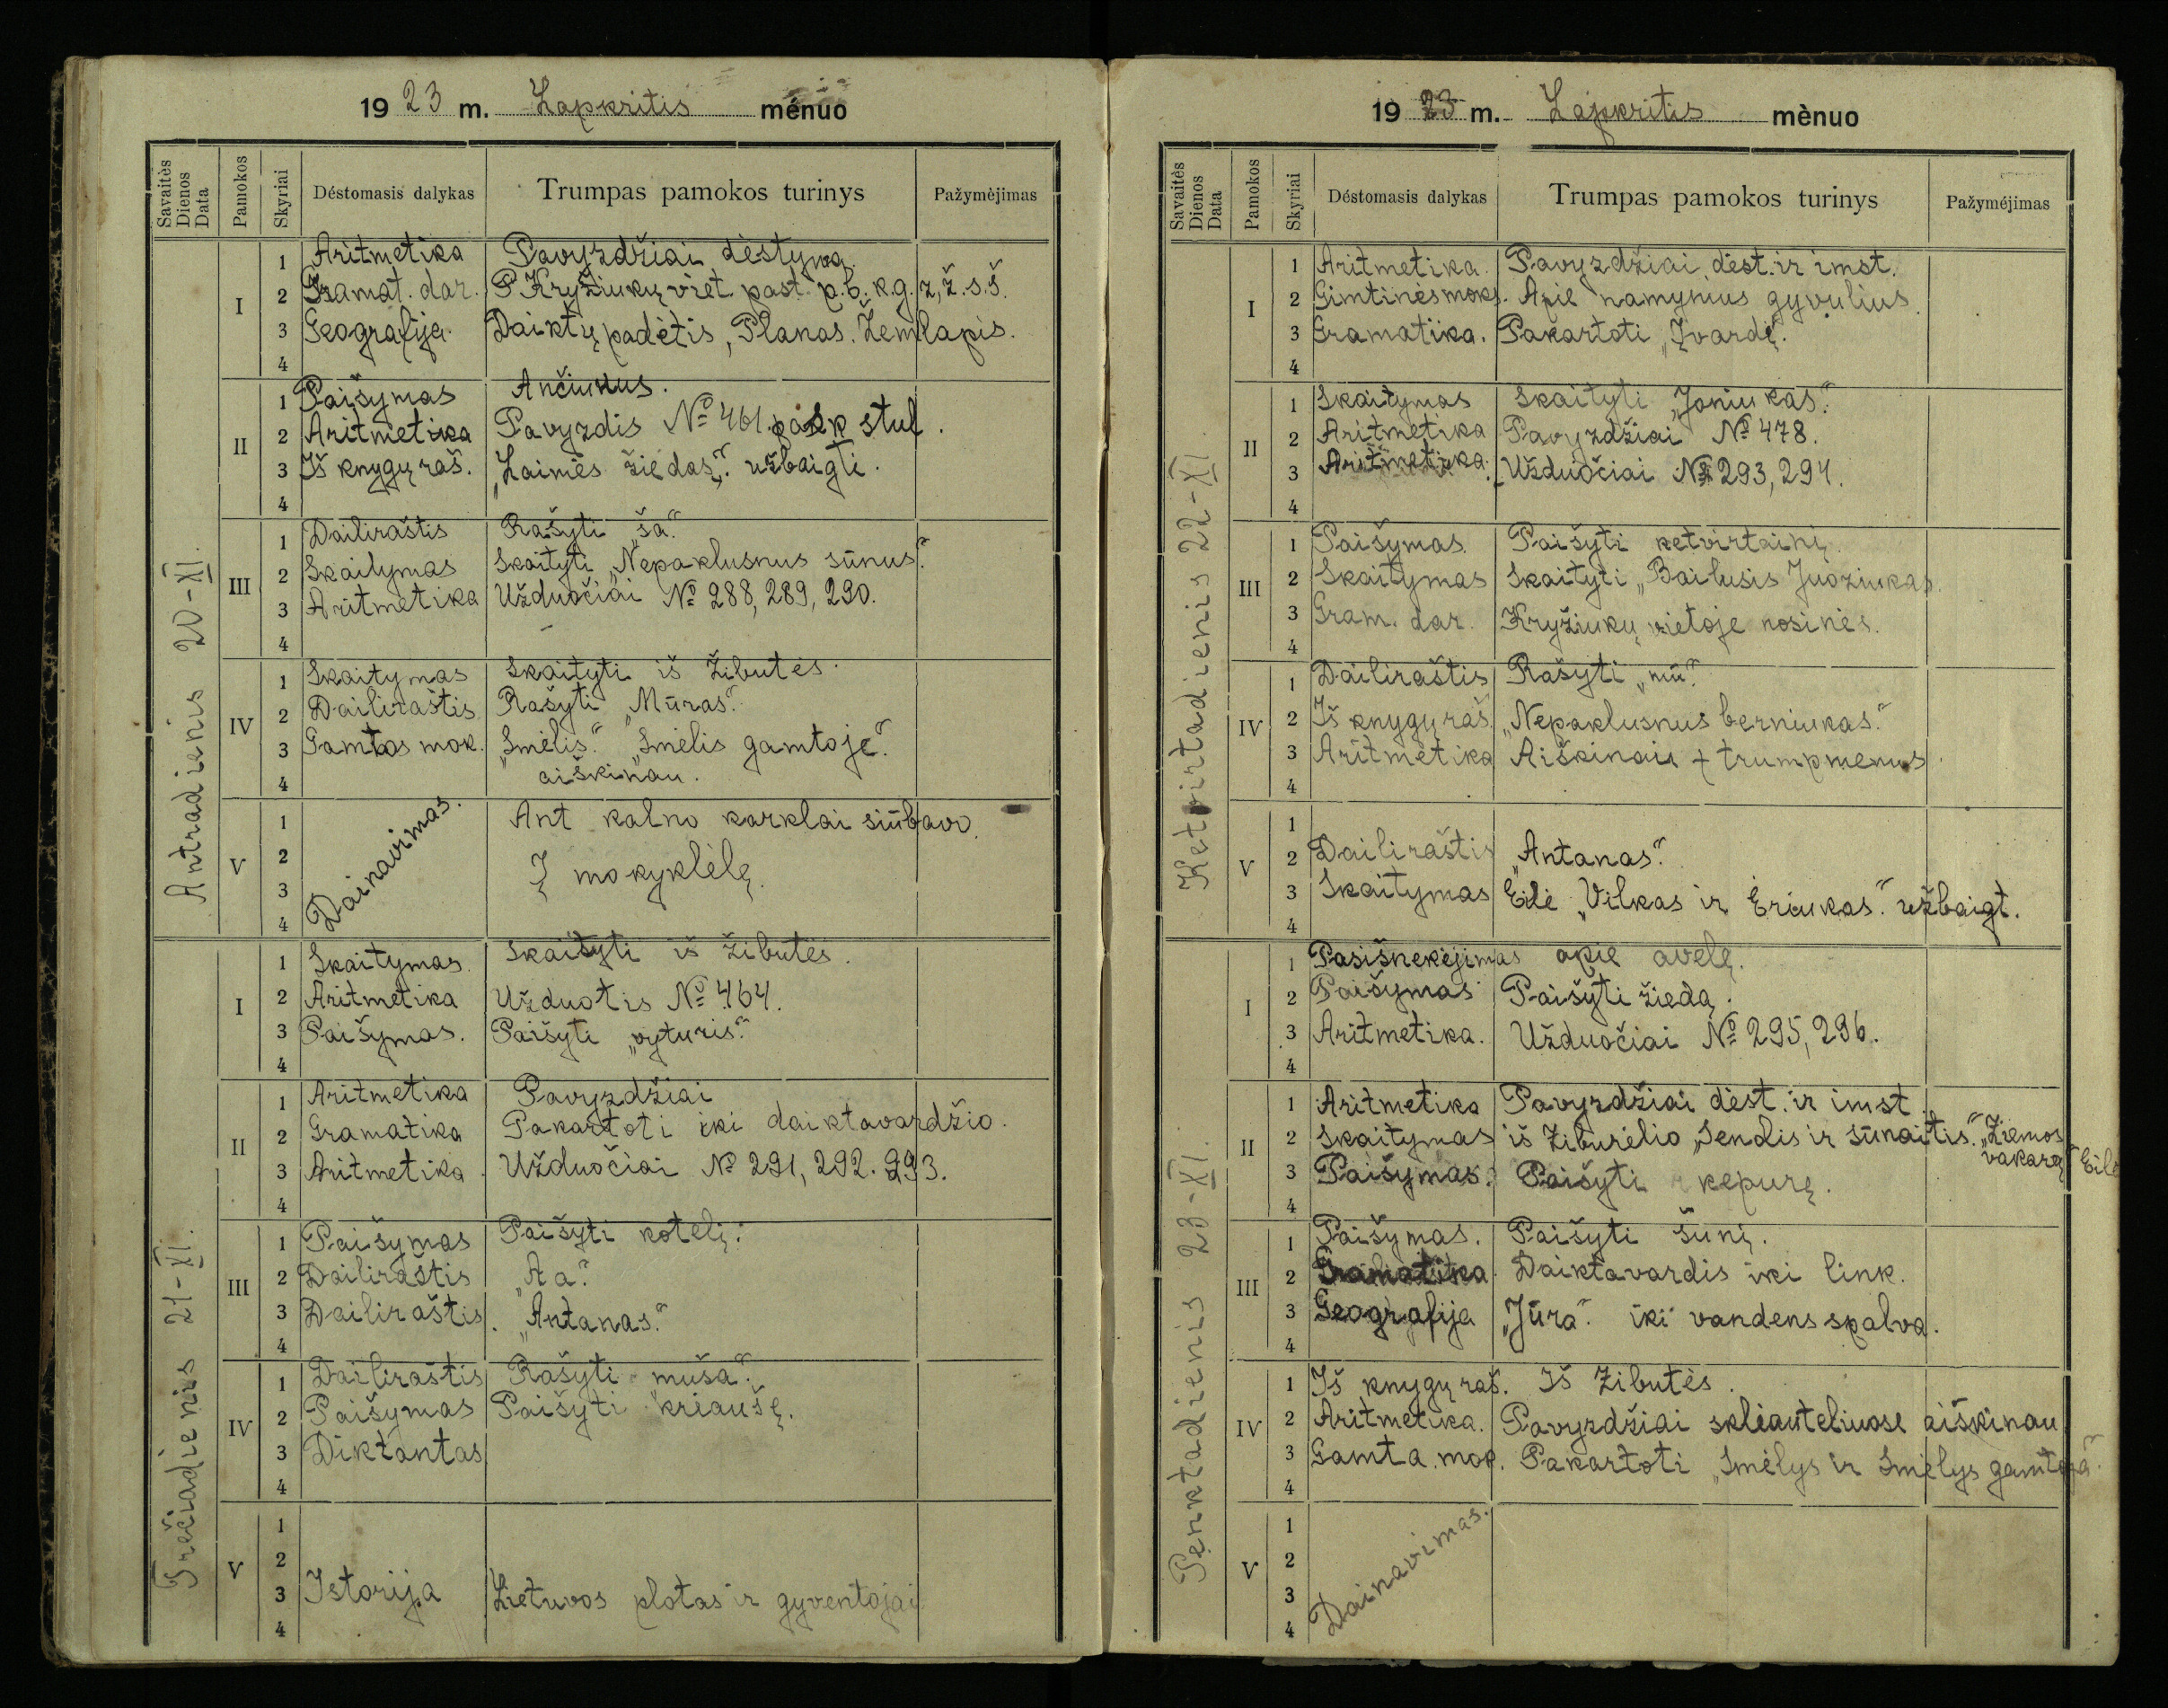 1923 m. Lapkritis mėnuo
Savaitės Dienos Data Pamokos Skyriai Dėstomasis dalykas Trumpas pamokos turinys Pažymėjimas
Antradienis 20-XI.
I
1 Aritmetika Pavyzdžiai dėstyma.
2 Gramat. dar. P. Kryžiukų viet. past. p. b. k. g. z, ž. s. š.
3 Geografija. Daiktų padėtis, Planas. Žemlapis.
4
II
1 Paišymas Ančiukus.
2 Aritmetika Pavyzdis № 461. pask stul.
3 Iš knygų raš. „Laimės žiedas“. užbaigti.
4
III
1 Dailiraštis Rašyti „ša“.
2 Skaitymas Skaityti „Nepaklusnus sūnus“.
3 Aritmetika Užduočiai № 288, 289, 290.
4
IV
1 Skaitymas Skaityti iš Žibutės.
2 Dailiraštis Rašyti „Mūras“.
3 Gamtos mok. „Smėlis“. „Smėlis gamtoje“.
aiškinau.
4
V
1 2 3 4 Dainavimas. Ant kalno karklai siūbavo.
Į mokyklėlę.
Trečiadienis 21-XI.
I
1 Skaitymas. Skaityti iš Žibutės.
2 Aritmetika Užduotis № 464.
3 Paišymas. Paišyti „vyturis“.
4
II
1 Aritmetika Pavyzdžiai
2 Gramatika Pakartoti iki daiktavardžio.
3 Aritmetika. Užduočiai № 291, 292. 293.
4
III
1 Paišymas Paišyti kotelį.
2 Dailiraštis „Aa“.
3 Dailiraštis. „Antanas.“
4
IV
1 Dailiraštis Rašyti „muša“.
2 Paišymas Paišyti kriaušę.
3 Diktantas
4
V
1
2
3 Istorija Lietuvos plotas ir gyventojai
4
1923 m. Lapkritis mėnuo
Savaitės Dienos Data Pamokos Skyriai Dėstomasis dalykas Trumpas pamokos turinys Pažymėjimas
Ketvirtadienis 22-XI
I
1 Aritmetika. Pavyzdžiai dėst. ir imst.
2 Gimtinės moks. Apie namynius gyvulius.
3 Gramatika. Pakartoti „Įvardį“.
4
II
1 Skaitymas Skaityti „Joniukas“.
2 Aritmetika Pavyzdžiai № 478.
3 Aritmetika. Užduočiai № 293, 294.
4
III
1 Paišymas. Paišyti ketvirtainį.
2 Skaitymas Skaityti „Bailusis Juoziukas.
3 Gram. dar. Kryžiukų vietoje nosinės.
4
IV
1 Dailiraštis Rašyti „mū“.
2 Iš knygų raš. „Nepaklusnus berniukas“.
3 Aritmetika Aiškinau + trumpmenus.
4
V
1
2 Dailiraštis „Antanas“.
3 Skaitymas Eilė „Vilkas ir Ėriukas“. užbaigt.
4
Penktadienis 23-XI.
I
1 Pasišnekėjimas apie avelę.
2 Paišymas Paišyti žiedą.
3 Aritmetika. Užduočiai № 295, 296.
4
II
1 Aritmetika Pavyzdžiai dėst. ir imst.
2 Skaitymas iš Žiburėlio „Senelis ir sūnaitis“. „Žiemos
vakarą“ Eilė
3 Paišymas. Paišyti kepurę.
4
III
1 Paišymas. Paišyti šunį.
2 Gramatika. Daiktavardis iki link.
3 Geografija „Jūra“. iki vandens spalva.
4
IV
1 Iš knygų raš. Iš Žibutės.
2 Aritmetika. Pavyzdžiai skliauteliuose aiškinau
3 Gamta. mok. Pakartoti „Smėlys ir Smėlys gamtoja“.
4
V
1 2 3 4 Dainavimas.